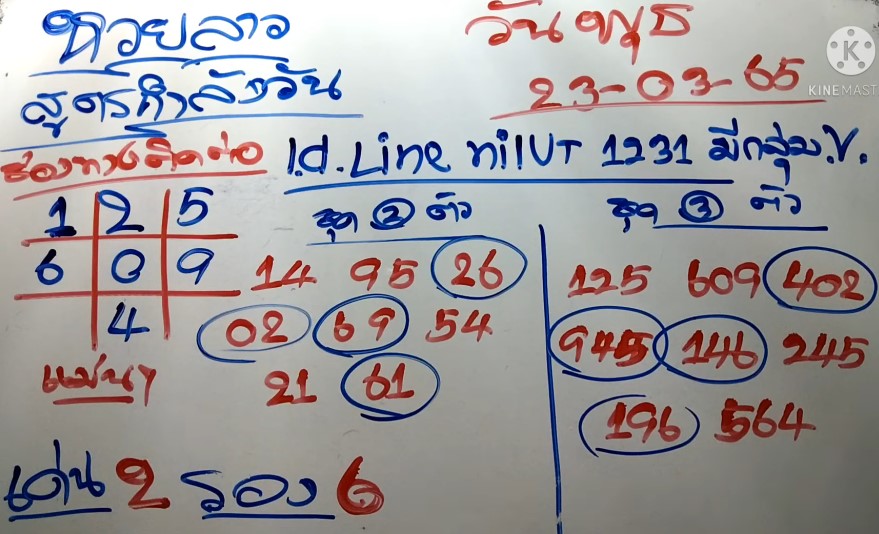 หวยลาว
วันพุธ
สูตรกำลังวัน
23-03-65
KINEMAST
ช่องทางติดต่อ
I.d. Line nilUT 1231 มีกลุ่ม.V.
1 2 5
6 0 9
4
แม่นๆ
ชุด 2 ตัว
14 95 26
02 69 54
21 61
ชุด 3 ตัว
125 609 402
945 146 245
196 564
เด่น 2 รอง 6